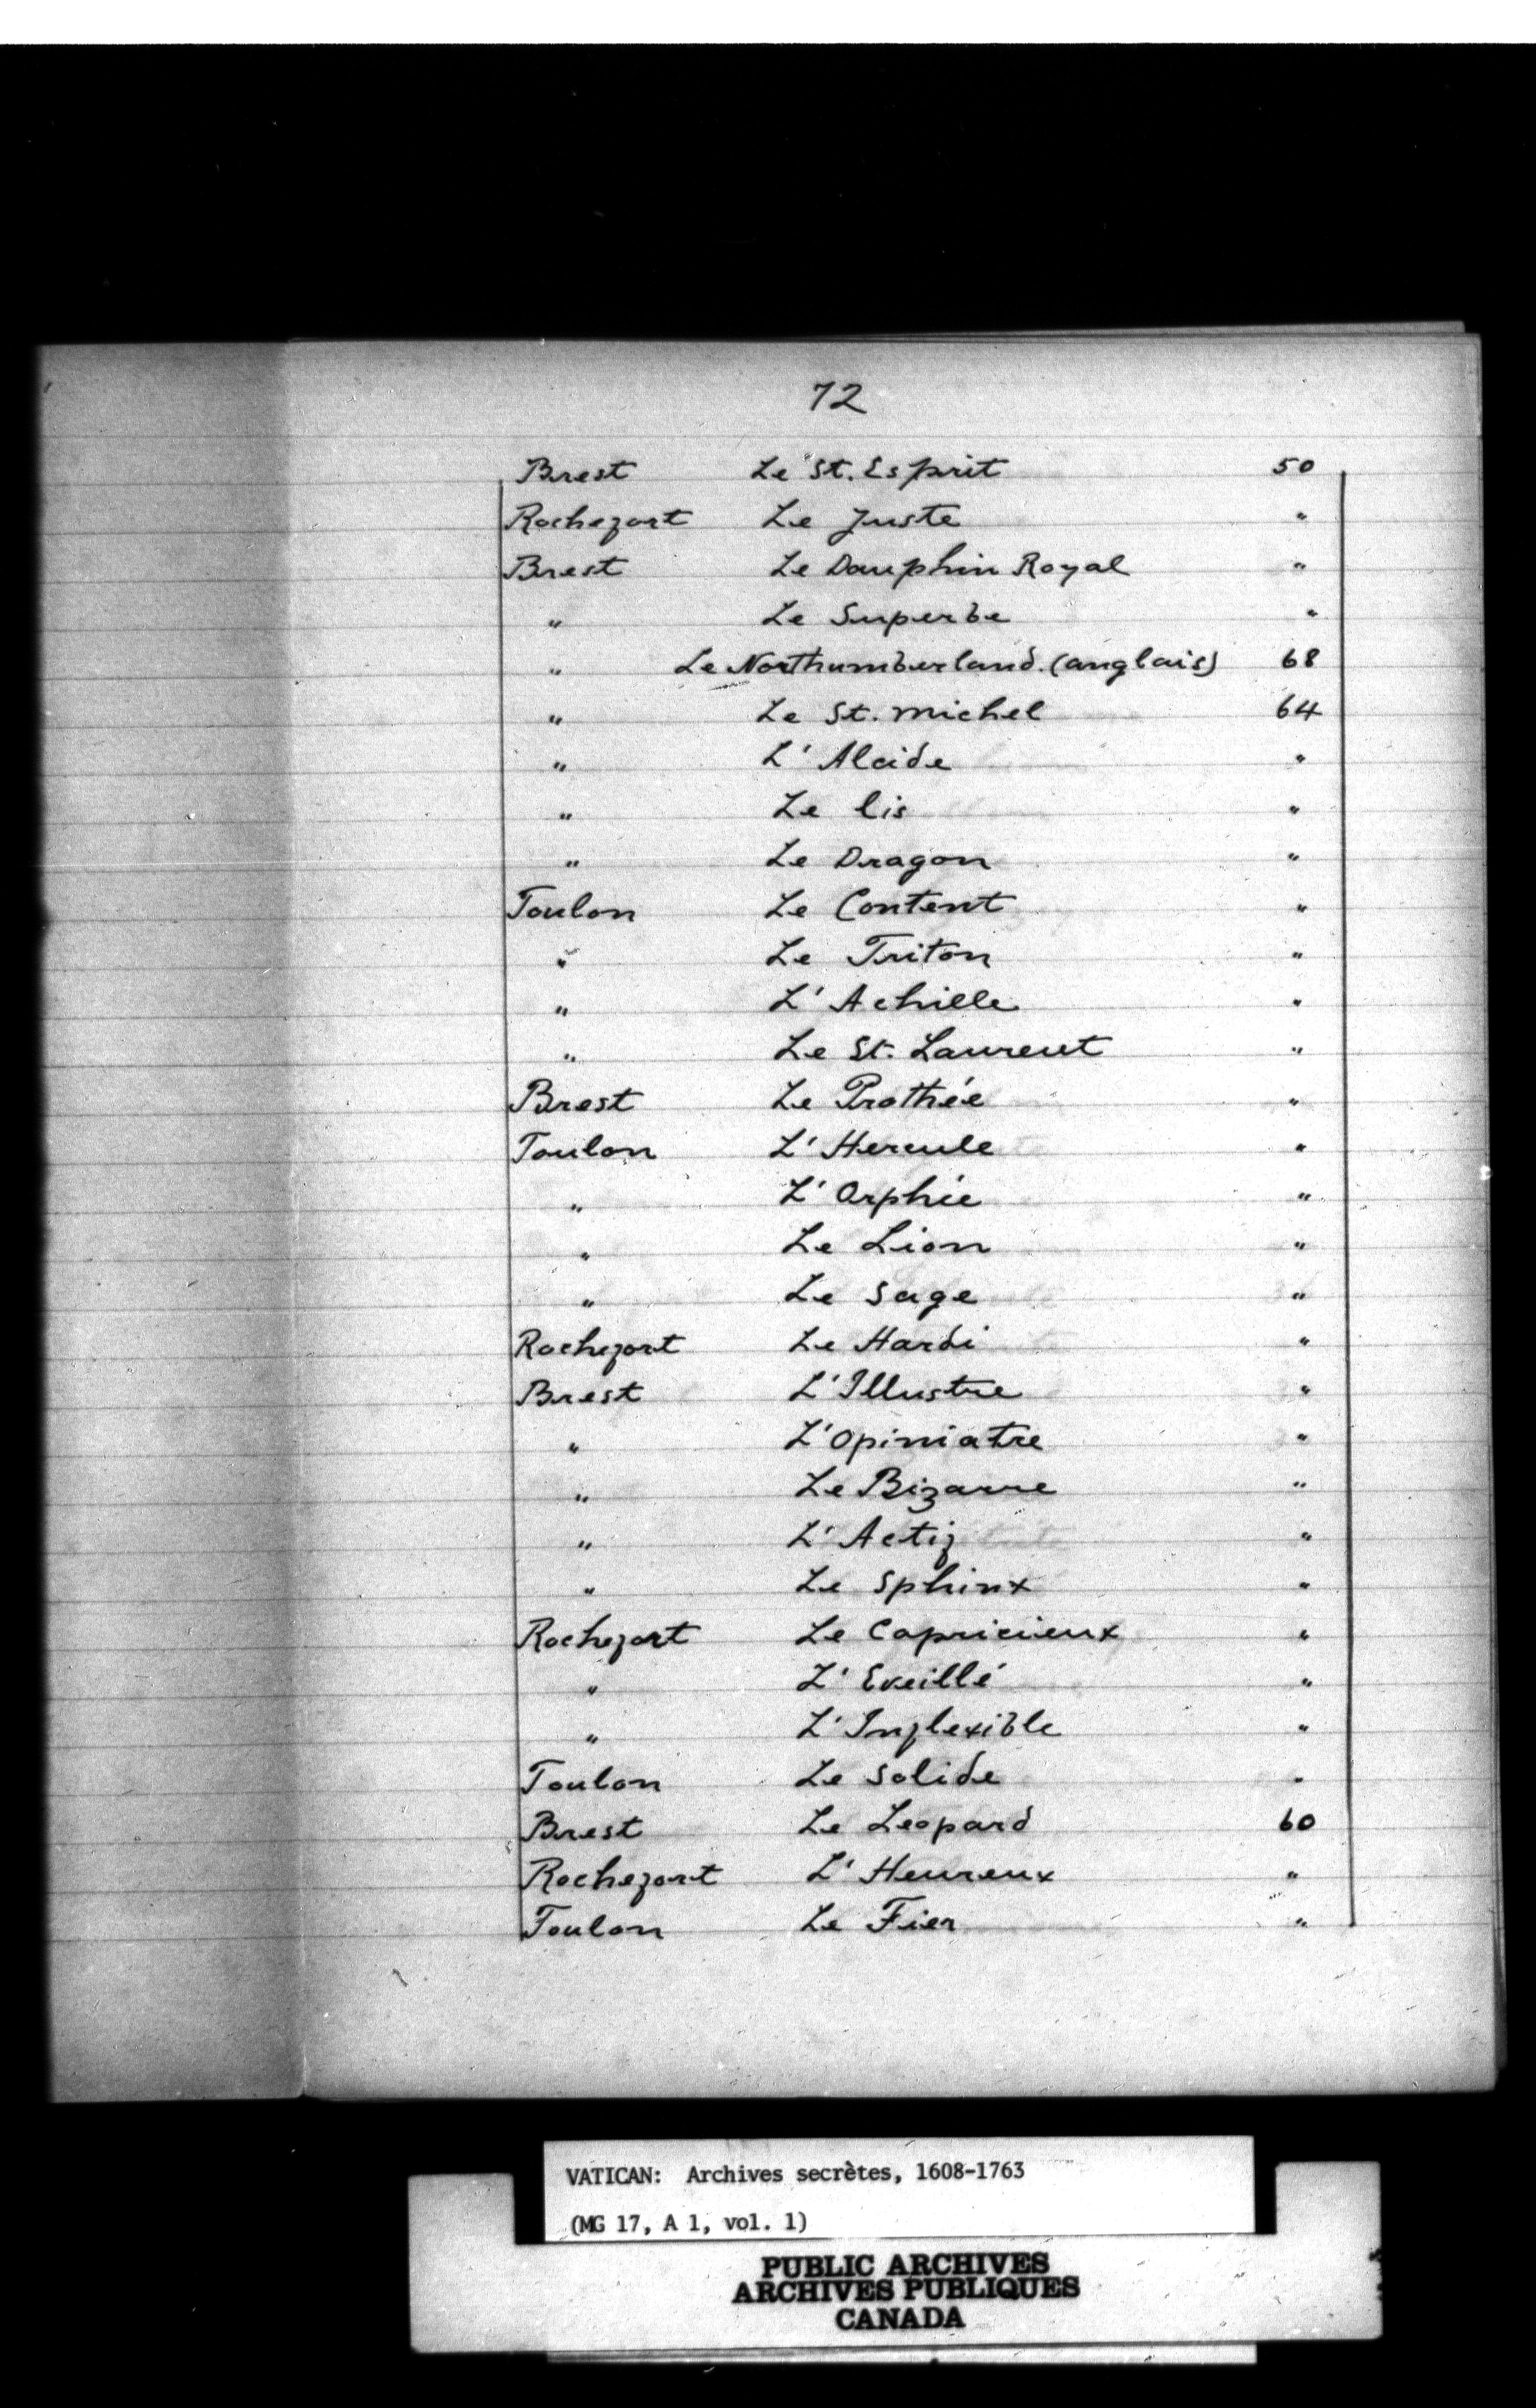 72
Brest Le St. Esprit 50
Rochefort Le Juste "
Brest Le Dauphin Royal "
" Le Superbe "
" Le Northumberland (anglais) 68
" Le St. Michel 64
" L'Alcide "
" Le lis "
" Le Dragon "
Toulon Le Content "
" Le Triton "
" L'Achille "
" Le St. Laurent "
Brest Le Prothée "
Toulon L'Hercule "
" L'Orphée "
" Le Lion "
" Le Sage "
Rochefort Le Hardi "
Brest L'Illustre "
" L'Opiniatre "
" Le Bizarre "
" L'Actif "
" Le Sphinx "
Rochefort Le Capricieux "
" L'Eveillé "
" L'Inflexible "
Toulon Le Solide "
Brest Le Leopard 60
Rochefort L'Heureux "
Toulon Le Fier "
VATICAN: Archives secrètes, 1608-1763
(MG 17, A 1, vol. 1)
PUBLIC ARCHIVES
ARCHIVES PUBLIQUES
CANADA